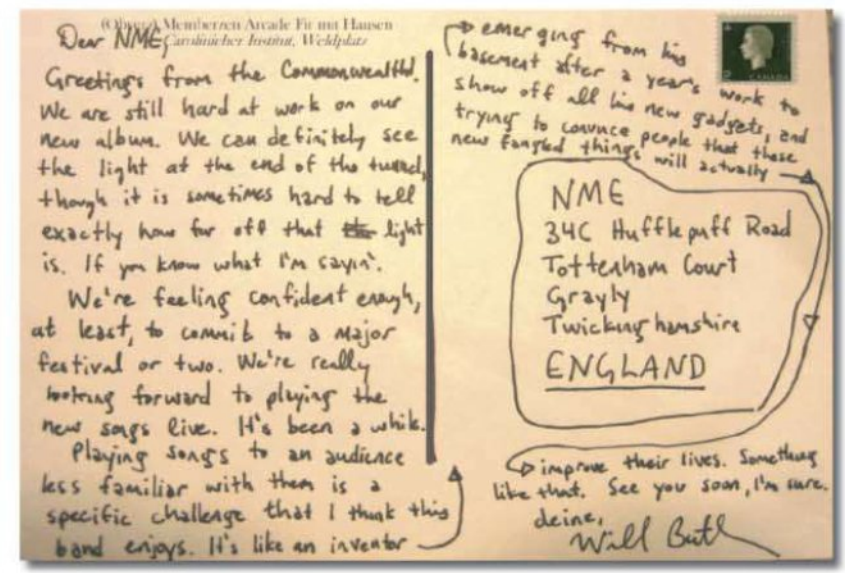 (Obverse) Memberzen Arcade Fir mit Hansen
Carolinicher Institut, Weldplatz
Dear NME,
Greetings from the Commonwealth.
We are still hard at work on our
new album. We can definitely see
the light at the end of the tunnel,
though it is sometimes hard to tell
exactly how far off that the light
is. If you know what I'm sayin'.
We're feeling confident enough,
at least, to commit to a major
festival or two. We're really
looking forward to playing the
new songs live. It's been a while.
Playing songs to an audience
less familiar with them is a
specific challenge that I think this
band enjoys. It's like an inventor
emerging from his
basement after a year's work to
show off all his new gadgets, and
trying to convince people that these
new fangled things will actually
CANADA
NME
34C Hufflepuff Road
Tottenham Court
Grayly
Twickinghamshire
ENGLAND
improve their lives. Something
like that. See you soon, I'm sure.
deine,
Will Butl